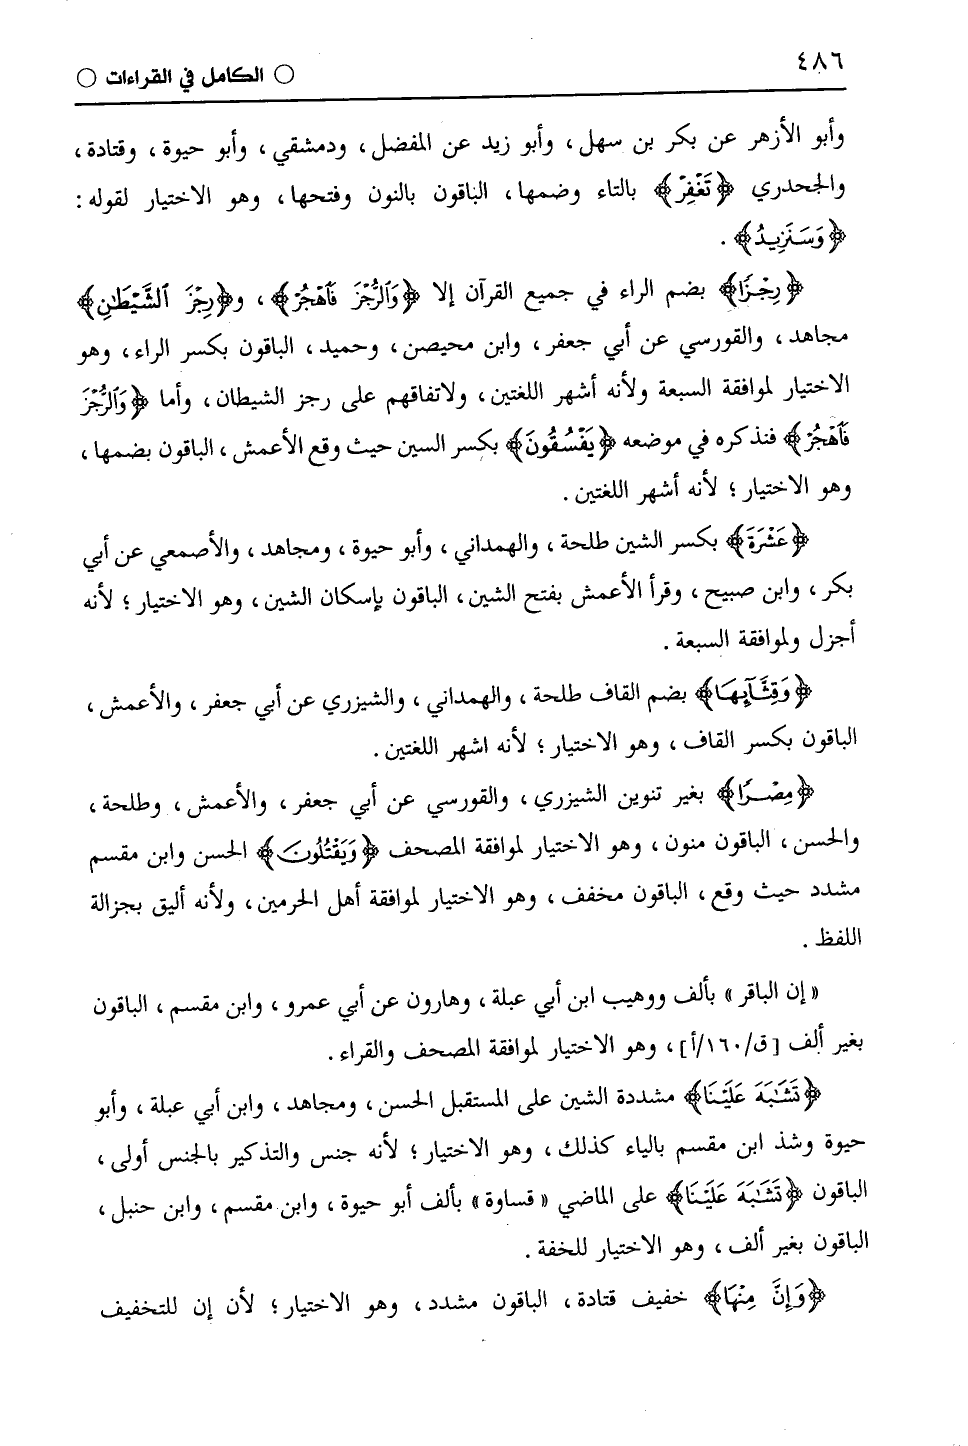 ٤٨٦
○ الكامل في القراءات ○
وأبو الأزهر عن بكر بن سهل، وأبو زيد عن المفضل، ودمشقي، وأبو حيوة، وقتادة،
والجحدري ﴿تَغْفِرْ﴾ بالتاء وضمها، الباقون بالنون وفتحها، وهو الاختيار لقوله:
﴿وَسَنَزِيدُ﴾.
﴿رِجْزًا﴾ بضم الراء في جميع القرآن إلا ﴿وَٱلرُّجْزَ فَٱهْجُرْ﴾، و﴿رِجْزَ ٱلشَّيْطَٰنِ﴾
مجاهد، والقورسي عن أبي جعفر، وابن محيصن، وحميد، الباقون بكسر الراء، وهو
الاختيار لموافقة السبعة ولأنه أشهر اللغتين، ولاتفاقهم على رجز الشيطان، وأما ﴿وَٱلرُّجْزَ
فَٱهْجُرْ﴾ فنذكره في موضعه ﴿يَفْسُقُونَ﴾ بكسر السين حيث وقع الأعمش، الباقون بضمها،
وهو الاختيار؛ لأنه أشهر اللغتين.
﴿عَشْرَةَ﴾ بكسر الشين طلحة، والهمداني، وأبو حيوة، ومجاهد، والأصمعي عن أبي
بكر، وابن صبيح، وقرأ الأعمش بفتح الشين، الباقون بإسكان الشين، وهو الاختيار؛ لأنه
أجزل ولموافقة السبعة.
﴿وَقِثَّآئِهَا﴾ بضم القاف طلحة، والهمداني، والشيزري عن أبي جعفر، والأعمش،
الباقون بكسر القاف، وهو الاختيار؛ لأنه اشهر اللغتين.
﴿مِصْرًا﴾ بغير تنوين الشيزري، والقورسي عن أبي جعفر، والأعمش، وطلحة،
والحسن، الباقون منون، وهو الاختيار لموافقة المصحف ﴿وَيَقْتُلُونَ﴾ الحسن وابن مقسم
مشدد حيث وقع، الباقون مخفف، وهو الاختيار لموافقة أهل الحرمين، ولأنه أليق بجزالة
اللفظ.
« إن الباقر » بألف ووهيب ابن أبي عبلة، وهارون عن أبي عمرو، وابن مقسم، الباقون
بغير ألف [ق/١٦٠/أ]، وهو الاختيار لموافقة المصحف والقراء.
﴿تَشَٰبَهَ عَلَيْنَا﴾ مشددة الشين على المستقبل الحسن، ومجاهد، وابن أبي عبلة، وأبو
حيوة وشذ ابن مقسم بالياء كذلك، وهو الاختيار؛ لأنه جنس والتذكير بالجنس أولى،
الباقون ﴿تَشَٰبَهَ عَلَيْنَا﴾ على الماضي « قساوة » بألف أبو حيوة، وابن مقسم، وابن حنبل،
الباقون بغير ألف، وهو الاختيار للخفة.
﴿وَإِنَّ مِنْهَا﴾ خفيف قتادة، الباقون مشدد، وهو الاختيار؛ لأن إن للتخفيف